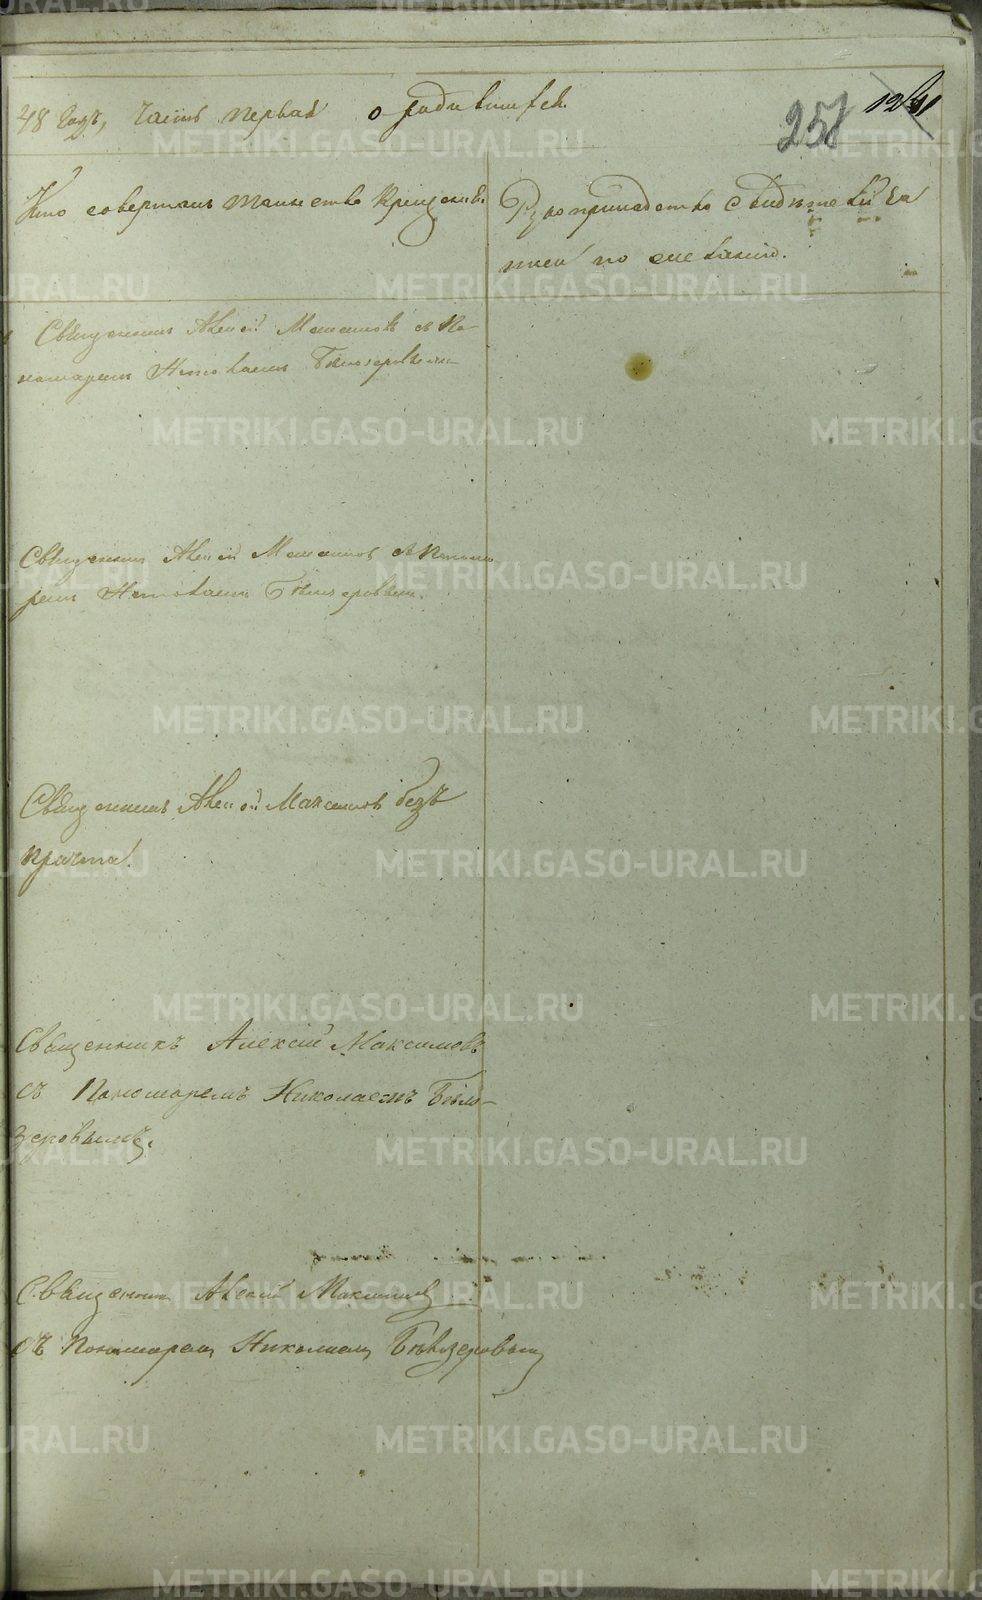 48 Годъ, Часть первая о родившихся.
257 1241
Кто совершалъ таинство крещенія.
Рукоприкладство свидѣтелей за
писи по желанію.
Священникъ Алексій Максимовъ съ По-
номаремъ Николаемъ Бѣлозеровымъ
Священникъ Алексій Максимовъ съ Понома
ремъ Николаемъ Бѣлозеровымъ.
Священникъ Алексій Максимовъ безъ
причта.
Священникъ Алексій Максимовъ
съ Пономаремъ Николаемъ Бѣло-
зеровымъ.
Священникъ Алексій Максимовъ
съ Пономаремъ Николаемъ Бѣлозеровымъ
METRIKI.GASO-URAL.RU